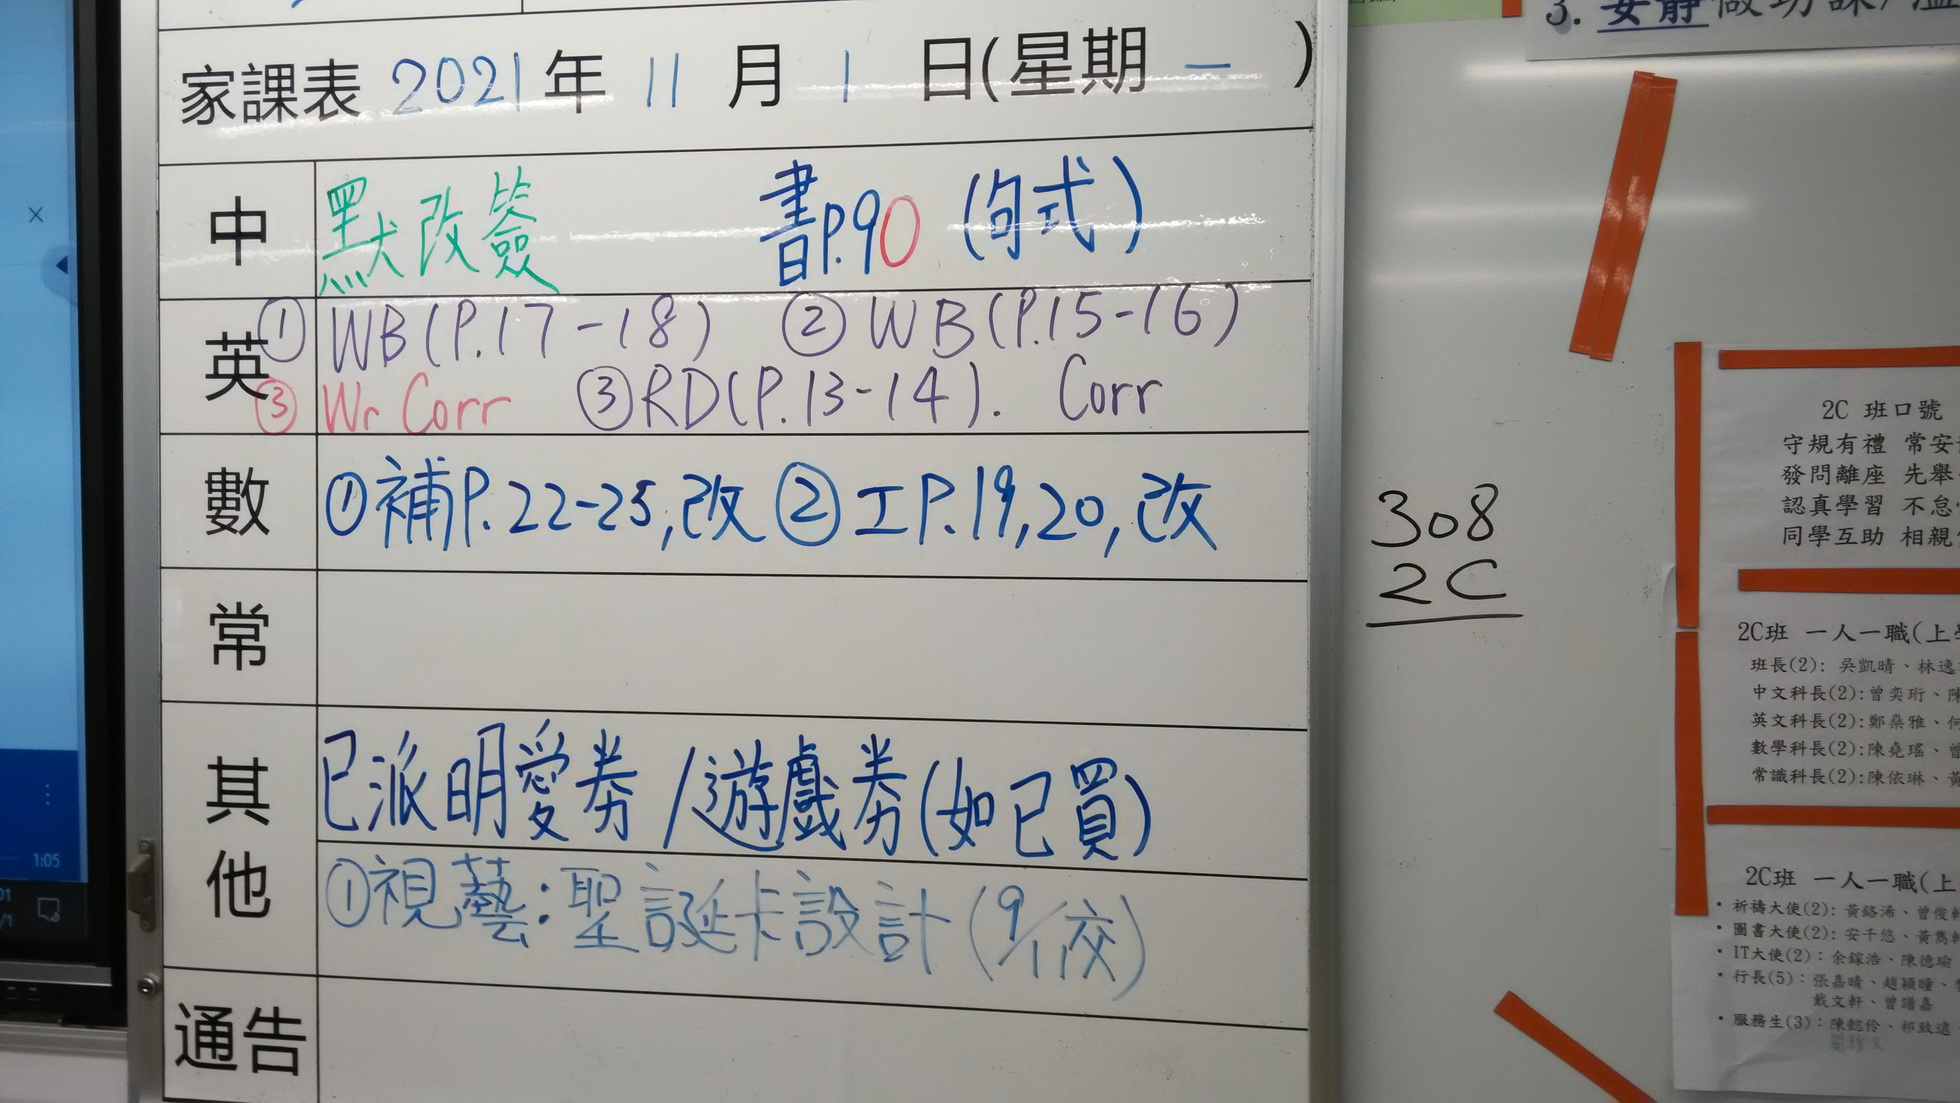 3. 安靜做功課
家課表 2021年 11 月 1 日(星期 一 )
中 默改簽 書P.90 (句式)
英 ① WB(P.17-18) ② WB(P.15-16)
③ Wr Corr ③ RD(P.13-14). Corr
數 ①補P.22-25,改 ②工P.19,20,改
常
其他 已派明愛券/遊戲券(如已買)
①視藝:聖誕卡設計(9/11交)
通告
308
2C
2C 班口號
守規有禮 常安
發問離座 先舉
認真學習 不怠
同學互助 相親
2C班 一人一職(上
班長(2): 吳凱晴、林逸
中文科長(2):曾奕珩、陳
英文科長(2):鄭燊雅、何
數學科長(2):陳堯瑤、曾
常識科長(2):陳依琳、黃
2C班 一人一職(上
• 祈禱大使(2): 黃鉻浠、曾俊
• 圖書大使(2): 安千悠、黃雋
• IT大使(2): 余鎵浩、陳德瑜
• 行長(5): 張嘉晴、趙穎曈、
戴文軒、曾譜嘉
• 服務生(3): 陳懿伶、祁致遠
1:05